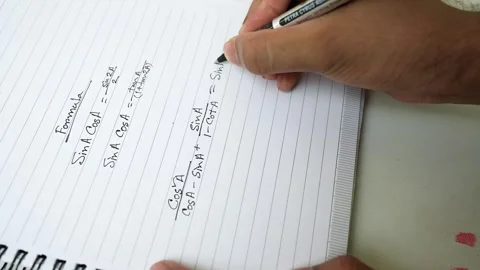 Formula
Sin A Cos A = -sin 2A / 2
Sin A Cos A = -tan A / (1+tan²A)
Cos²A / Cos A - Sin A + Sin A / 1 - Cot A = Sin A